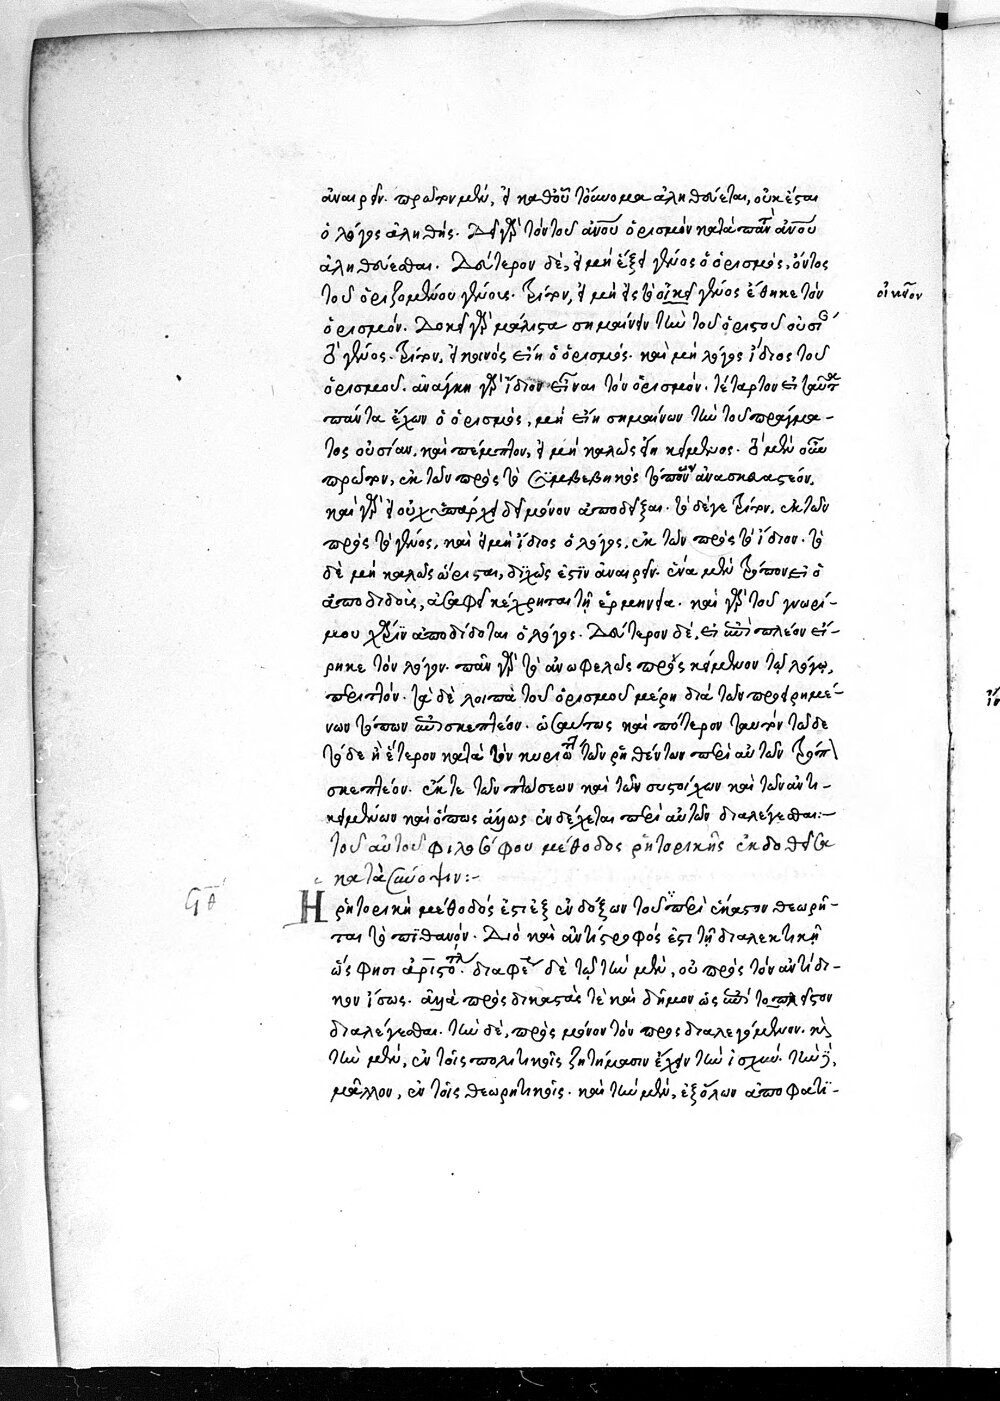 ἀναιρεῖν. πρῶτον μὲν, εἰ καθ' οὗ τοὔνομα ἀληθεύεται, οὐκ ἔσται
ὁ λόγος ἀληθής. δεῖ γὰρ τὸν τοῦ ἀνου ὁρισμὸν κατὰ παντὸς ἀνου
ἀληθεύεσθαι. Δεύτερον δὲ, εἰ μὴ ἕξει γένος ὁ ὁρισμὸς, ὄντος
τοῦ ὁριζομένου γένους. τρίτον, εἰ μὴ εἰς τὸ οἰκεῖ γένος ἔθηκε τὸν
οἰκεῖον
ὁρισμόν. Δοκεῖ γὰρ μάλιστα σημαίνειν τὴν τοῦ ὁριστοῦ οὐσίαν
τὸ γένος. τρίτον, εἰ κοινὸς εἴη ὁ ὁρισμός. καὶ μὴ λόγος ἴδιος τοῦ
ὁρισμοῦ. ἀνάγκη γὰρ ἴδιον εἶναι τὸν ὁρισμόν. τέταρτον εἰ ταῦτα
πάντα ἔχων ὁ ὁρισμὸς, μὴ εἴη σημαίνων τὴν τοῦ πράγμα-
τος οὐσίαν, καὶ πέμπτον, εἰ μὴ καλῶς εἴη κείμενος. τὸ μὲν οὖν
πρῶτον, ἐκ τῶν πρὸς τὸ συμβεβηκὸς τόπων ἀνασκευαστέον.
καὶ γὰρ εἰ οὐχ ὑπάρχει δεῖ μόνον ἀποδεῖξαι. τὸ δέ γε τρίτον, ἐκ τῶν
πρὸς τὸ γένος, καὶ εἰ μὴ ἴδιος ὁ λόγος, ἐκ τῶν πρὸς τὸ ἴδιον. τὸ
δὲ μὴ καλῶς ὥρισται, διχῶς ἐστὶν ἀναιρεῖν. ἕνα μὲν τρόπον εἰ ὁ
ἀποδιδοὺς, ἀσαφεῖ κέχρηται τῇ ἑρμηνεία. καὶ γὰρ τοῦ γνωρί-
μου χάριν ἀποδίδοται ὁ λόγος. Δεύτερον δὲ, εἰ ἐπὶ πλέον εἴ-
ρηκε τὸν λόγον. πᾶν γὰρ τὸ ἀνωφελῶς προσκείμενον τῷ λόγῳ,
περιττόν. τὰ δὲ λοιπὰ τοῦ ὁρισμοῦ μέρη διὰ τῶν προειρημέ-
νων τόπων ἐπισκεπτέον. ὡσαύτως καὶ πότερον ταυτὸν τόδε
τῷδε ἢ ἕτερον κατὰ τὸν κυριώτατον τῶν ῥηθέντων περὶ αὐτῶν τρόπον
σκεπτέον. ἔκ τε τῶν πτώσεων καὶ τῶν συστοίχων καὶ τῶν ἀντι-
κειμένων καὶ ὅπως ἄλλως ἐνδέχεται περὶ αὐτῶν διαλέγεσθαι:-
τοῦ αὐτοῦ φιλοσόφου μέθοδος ῥητορικῆς ἐκδοθεῖσα
κατὰ σύνοψιν:-
Ἡ ῥητορικὴ μέθοδός ἐστι ἐξ ἐνδόξων τοῦ περὶ ἕκαστον θεωρῆ-
ται τὸ πιθανόν. Διὸ καὶ ἀντίστροφός ἐστι τῇ διαλεκτικῇ
ὥς φησι ἀριστοτλ. διαφέρει δὲ τῷ τὴν μὲν, οὐ πρὸς τὸν ἀντίδι-
κον ἴσως. ἀλλὰ πρὸς δικαστάς τε καὶ δῆμον ὡς ἐπὶ τὸ πλεῖστον
διαλέγεσθαι. τὴν δὲ, πρὸς μόνον τὸν προσδιαλεγόμενον. καὶ
τὴν μὲν, ἐν τοῖς πολιτικοῖς ζητήμασιν ἔχειν τὴν ἰσχύν. τὴν δὲ,
μᾶλλον, ἐν τοῖς θεωρητικοῖς. καὶ τὴν μὲν, ἐξ ὅλων ἀποφατι-